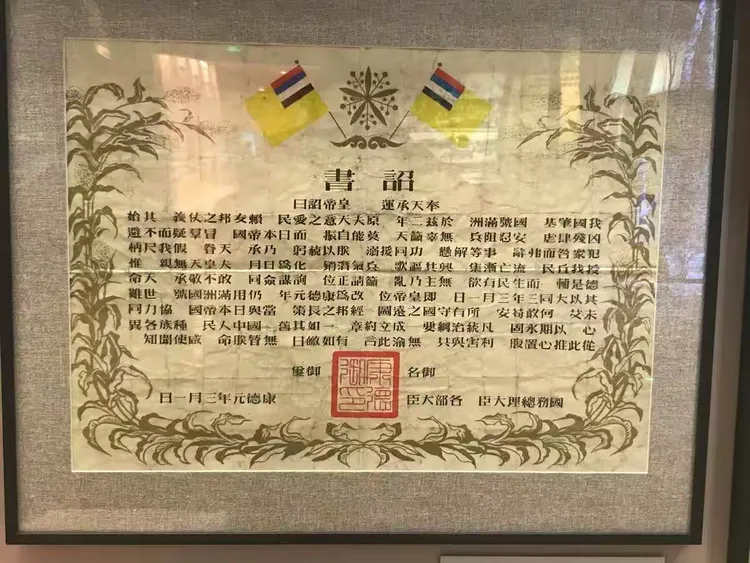 詔書
奉天承運 皇帝詔曰
我國肇基 國號滿洲 於茲二年 原夫天意之愛民 賴友邦之仗義 其始
凶殘肆虐 安忍阻兵 無辜籲天 莫能自振 而日本帝國 冒羣疑而不避
犯衆咎而弗辭 事等解懸 功同援溺 朕以藐躬 乃承 天眷 假我尺柄
授我丘民 流亡漸集 興其謳歌 兵氣潛銷 化爲日月 夫皇天無親 惟
德是輔 而生民有欲 無主乃亂 籲請正位 詢謀僉同 敢不敬承 天命
其以大同三年三月一日 即皇帝位 改爲康德元年 仍用滿洲國號 世難
未艾 何敢苟安 所有守國之遠圖 經邦之長策 當與日本帝國 協力同
心 以期永固 凡統治綱要 成立約章 一如其舊 國中人民 種族各異
從此推心置腹 利害與共 無渝此言 有如皦日 無替朕命 咸使聞知
御名 御璽
康德御印
康德元年三月一日
國務總理大臣 各部大臣